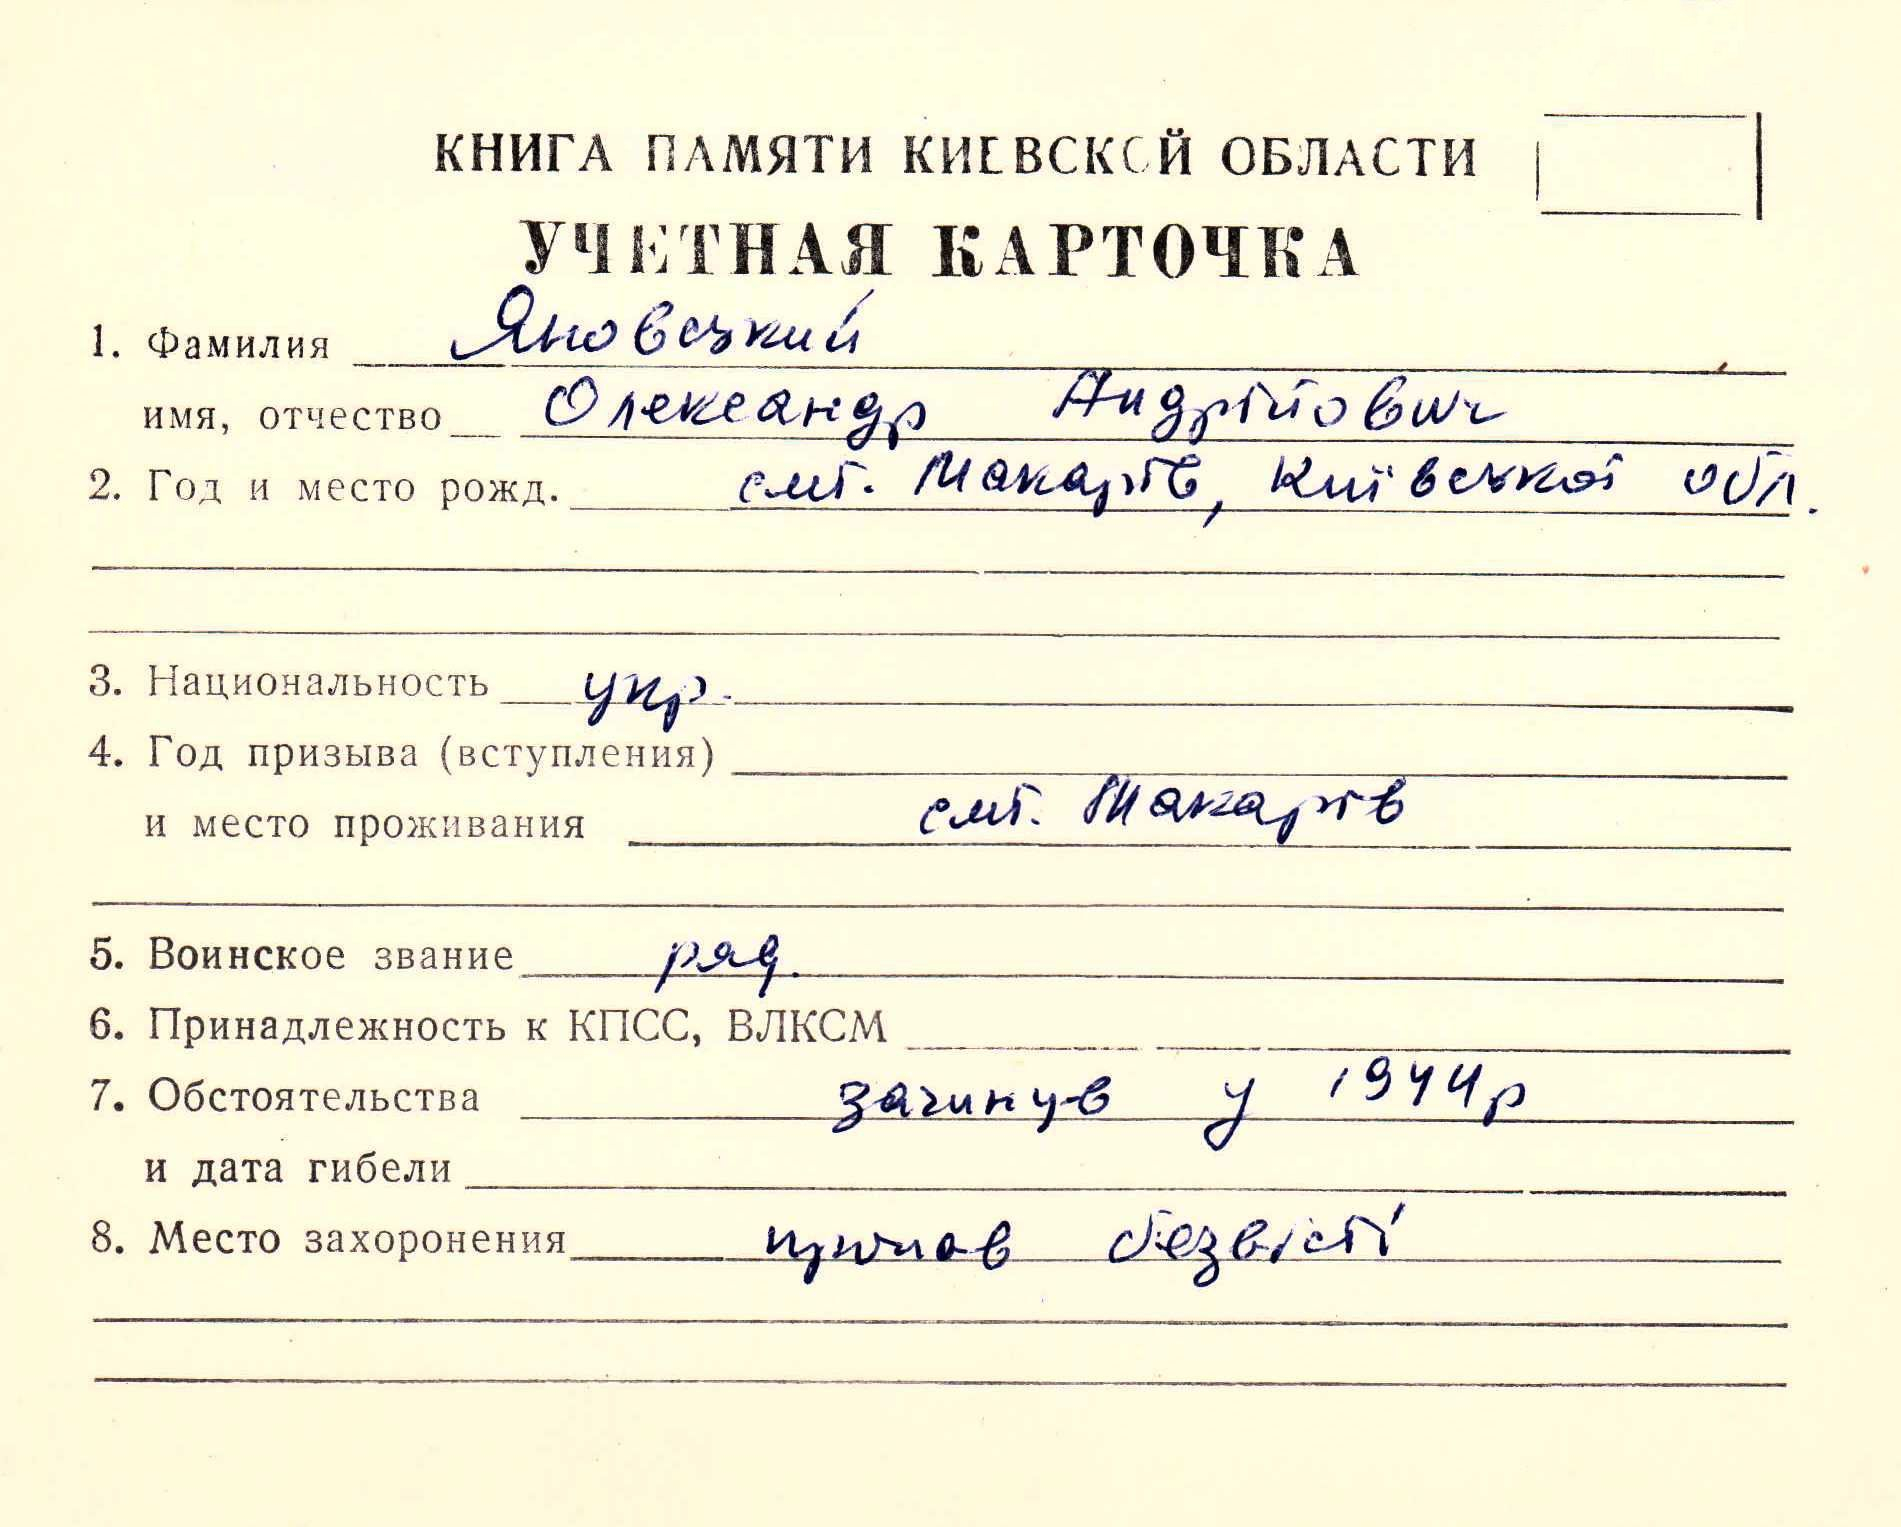 КНИГА ПАМЯТИ КИЕВСКОЙ ОБЛАСТИ
УЧЕТНАЯ КАРТОЧКА
1. Фамилия Яновський
имя, отчество Олександр Андрійович
2. Год и место рожд. смт. Макарів, Київської обл.
3. Национальность укр.
4. Год призыва (вступления)
и место проживания смт. Макарів
5. Воинское звание ряд.
6. Принадлежность к КПСС, ВЛКСМ
7. Обстоятельства загинув у 1944р
и дата гибели
8. Место захоронения пропав безвісті